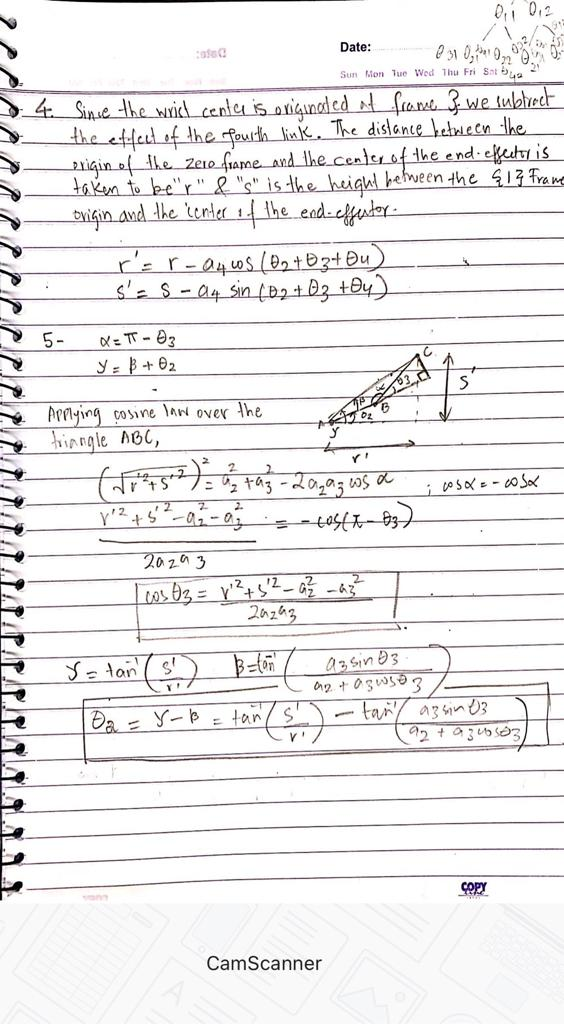 θ11 θ12
Date:
Sun Mon Tue Wed Thu Fri Sat
θ31 θ21 θ22
4. Since the wrist center is originated at frame 3 we subtract
the effect of the fourth link. The distance between the
origin of the zero frame and the center of the end-effector is
taken to be "r" & "s" is the height between the {1} Frame
origin and the center of the end-effector.
r' = r - a4 cos (θ2+θ3+θ4)
s' = s - a4 sin (θ2+θ3+θ4)
5- α = π - θ3
γ = β + θ2
Applying cosine law over the
triangle ABC,
A B C α β γ θ2 θ3 r' s'
(√r'²+s'²)² = a2² + a3² - 2a2a3 cos α ; cosα = -cosα
r'²+s'²-a2²-a3² = -cos(π - θ3)
2a2a3
cosθ3 = r'²+s'²-a2²-a3²
2a2a3
γ = tan⁻¹(s'/r') β = tan⁻¹(a3sinθ3 / a2+a3cosθ3)
θ2 = γ-β = tan⁻¹(s'/r') - tan⁻¹(a3sinθ3 / a2+a3cosθ3)
COPY
CamScanner